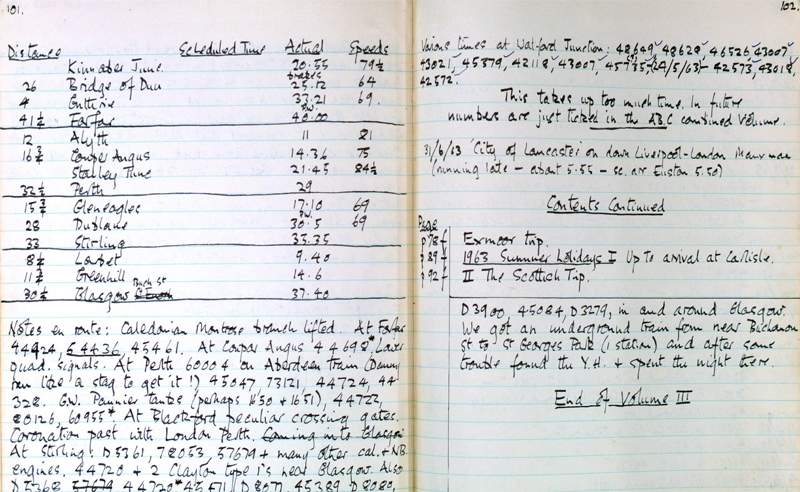 101.
Distance Scheduled Time Actual Speeds
Kinnaber Junc. 20.55 79½
26 Bridge of Dun 25.12 64
4 Guthrie 33.21 69.
41½ Forfar 40.00
12 Alyth 11 81
16¾ Coupar Angus 14.36 75
Stanley Junc 21.45 84½
32½ Perth 29
15¾ Gleneagles 17.10 69
28 Dunblane 30.5 69
33 Stirling 35.35
8½ Larbert 9.40
11½ Greenhill 14.6
30½ Glasgow Buch St 37.40
Notes en route: Caledonian Montrose branch lifted. At Forfar
44924, 54486, 45461. At Coupar Angus 44698* Lower
quad. signals. At Perth 60004 on Aberdeen train (Danny
ran like a stag to get it!) 45047, 73121, 44724, 44
328. G.W. Pannier tanks (perhaps 1650 + 1651), 44722,
80126, 60955* At Blackford peculiar crossing gates.
Coronation past with London Perth. Coming into Glasgow
At Stirling: D5361, 78053, 57679 + many other cal. + NB
engines. 44720 + 2 Clayton type 1's near Glasgow. Also
D5368 57679 44720* D8077, 45389 D8080,
102.
Various times at Watford Junction: 48649, 48628, 46526, 43007
43021, 45379, 42118, 43007, 45735, (24/5/63)- 42573, 43018,
42572.
This takes up too much time. In future
numbers are just ticked in the ABC combined Volume.
31/6/63 'City of Lancaster' on down Liverpool-London
(running late - about 5.55 - sc. arr Euston 5.50)
Contents Continued
Page
p78f Exmoor trip.
p89f 1963 Summer Holidays I Up to arrival at Carlisle.
p92f II The Scottish Trip.
D3900, 45084, D3279, in and around Glasgow.
We got an underground train from near Buchanan
St to St Georges Park (1 station) and after some
trouble found the Y.H. + spent the night there.
End of Volume III